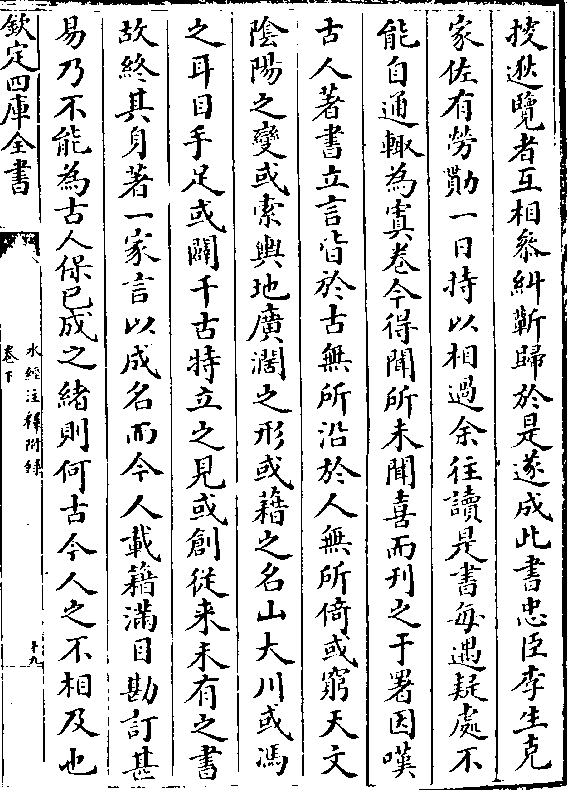 挍逖覽者互相叅糾蘄歸於是遂成此書忠臣李生克
家佐有勞勩一日持以相過余往讀是書每遇疑處不
能自通輙為寘卷今得聞所未聞喜而刊之于署因嘆
古人著書立言皆於古無所沿於人無所倚或窮天文
陰陽之變或索輿地廣濶之形或藉之名山大川或馮
之耳目手足或闢千古特立之見或創從来未有之書
故終其身著一家言以成名而今人載籍滿目勘訂甚
易乃不能為古人保已成之緒則何古今人之不相及也
欽定四庫全書
水經注釋附録
卷下
十九